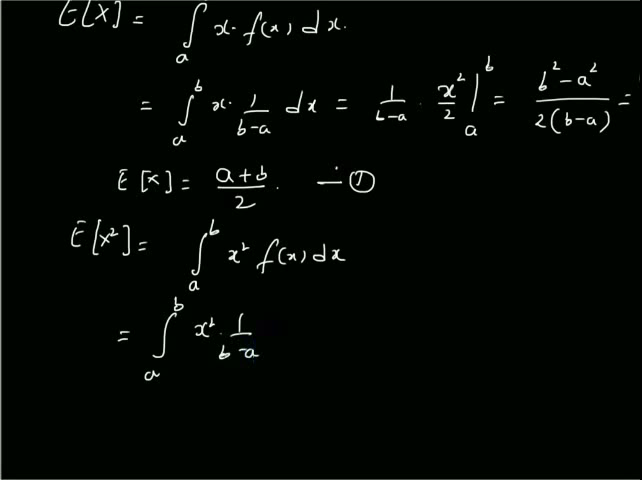 E[X] = ∫_a x· f(x) dx.
= ∫_a^b x· 1/(b-a) dx = 1/(b-a) · x²/2 |_a^b = (b²-a²)/(2(b-a)) =
E[X] = (a+b)/2. — ①
E[X²] = ∫_a^b x² f(x) dx
= ∫_a^b x² · 1/(b-a)